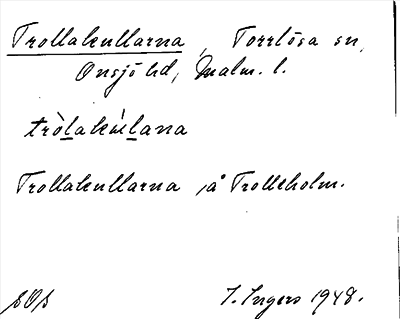 Trollakullarna, Torrlösa sn,
Onsjö hd, Malm. l.
tròlakúlana
Trollakullarna på Trolleholm.
I. Ingers 1948.